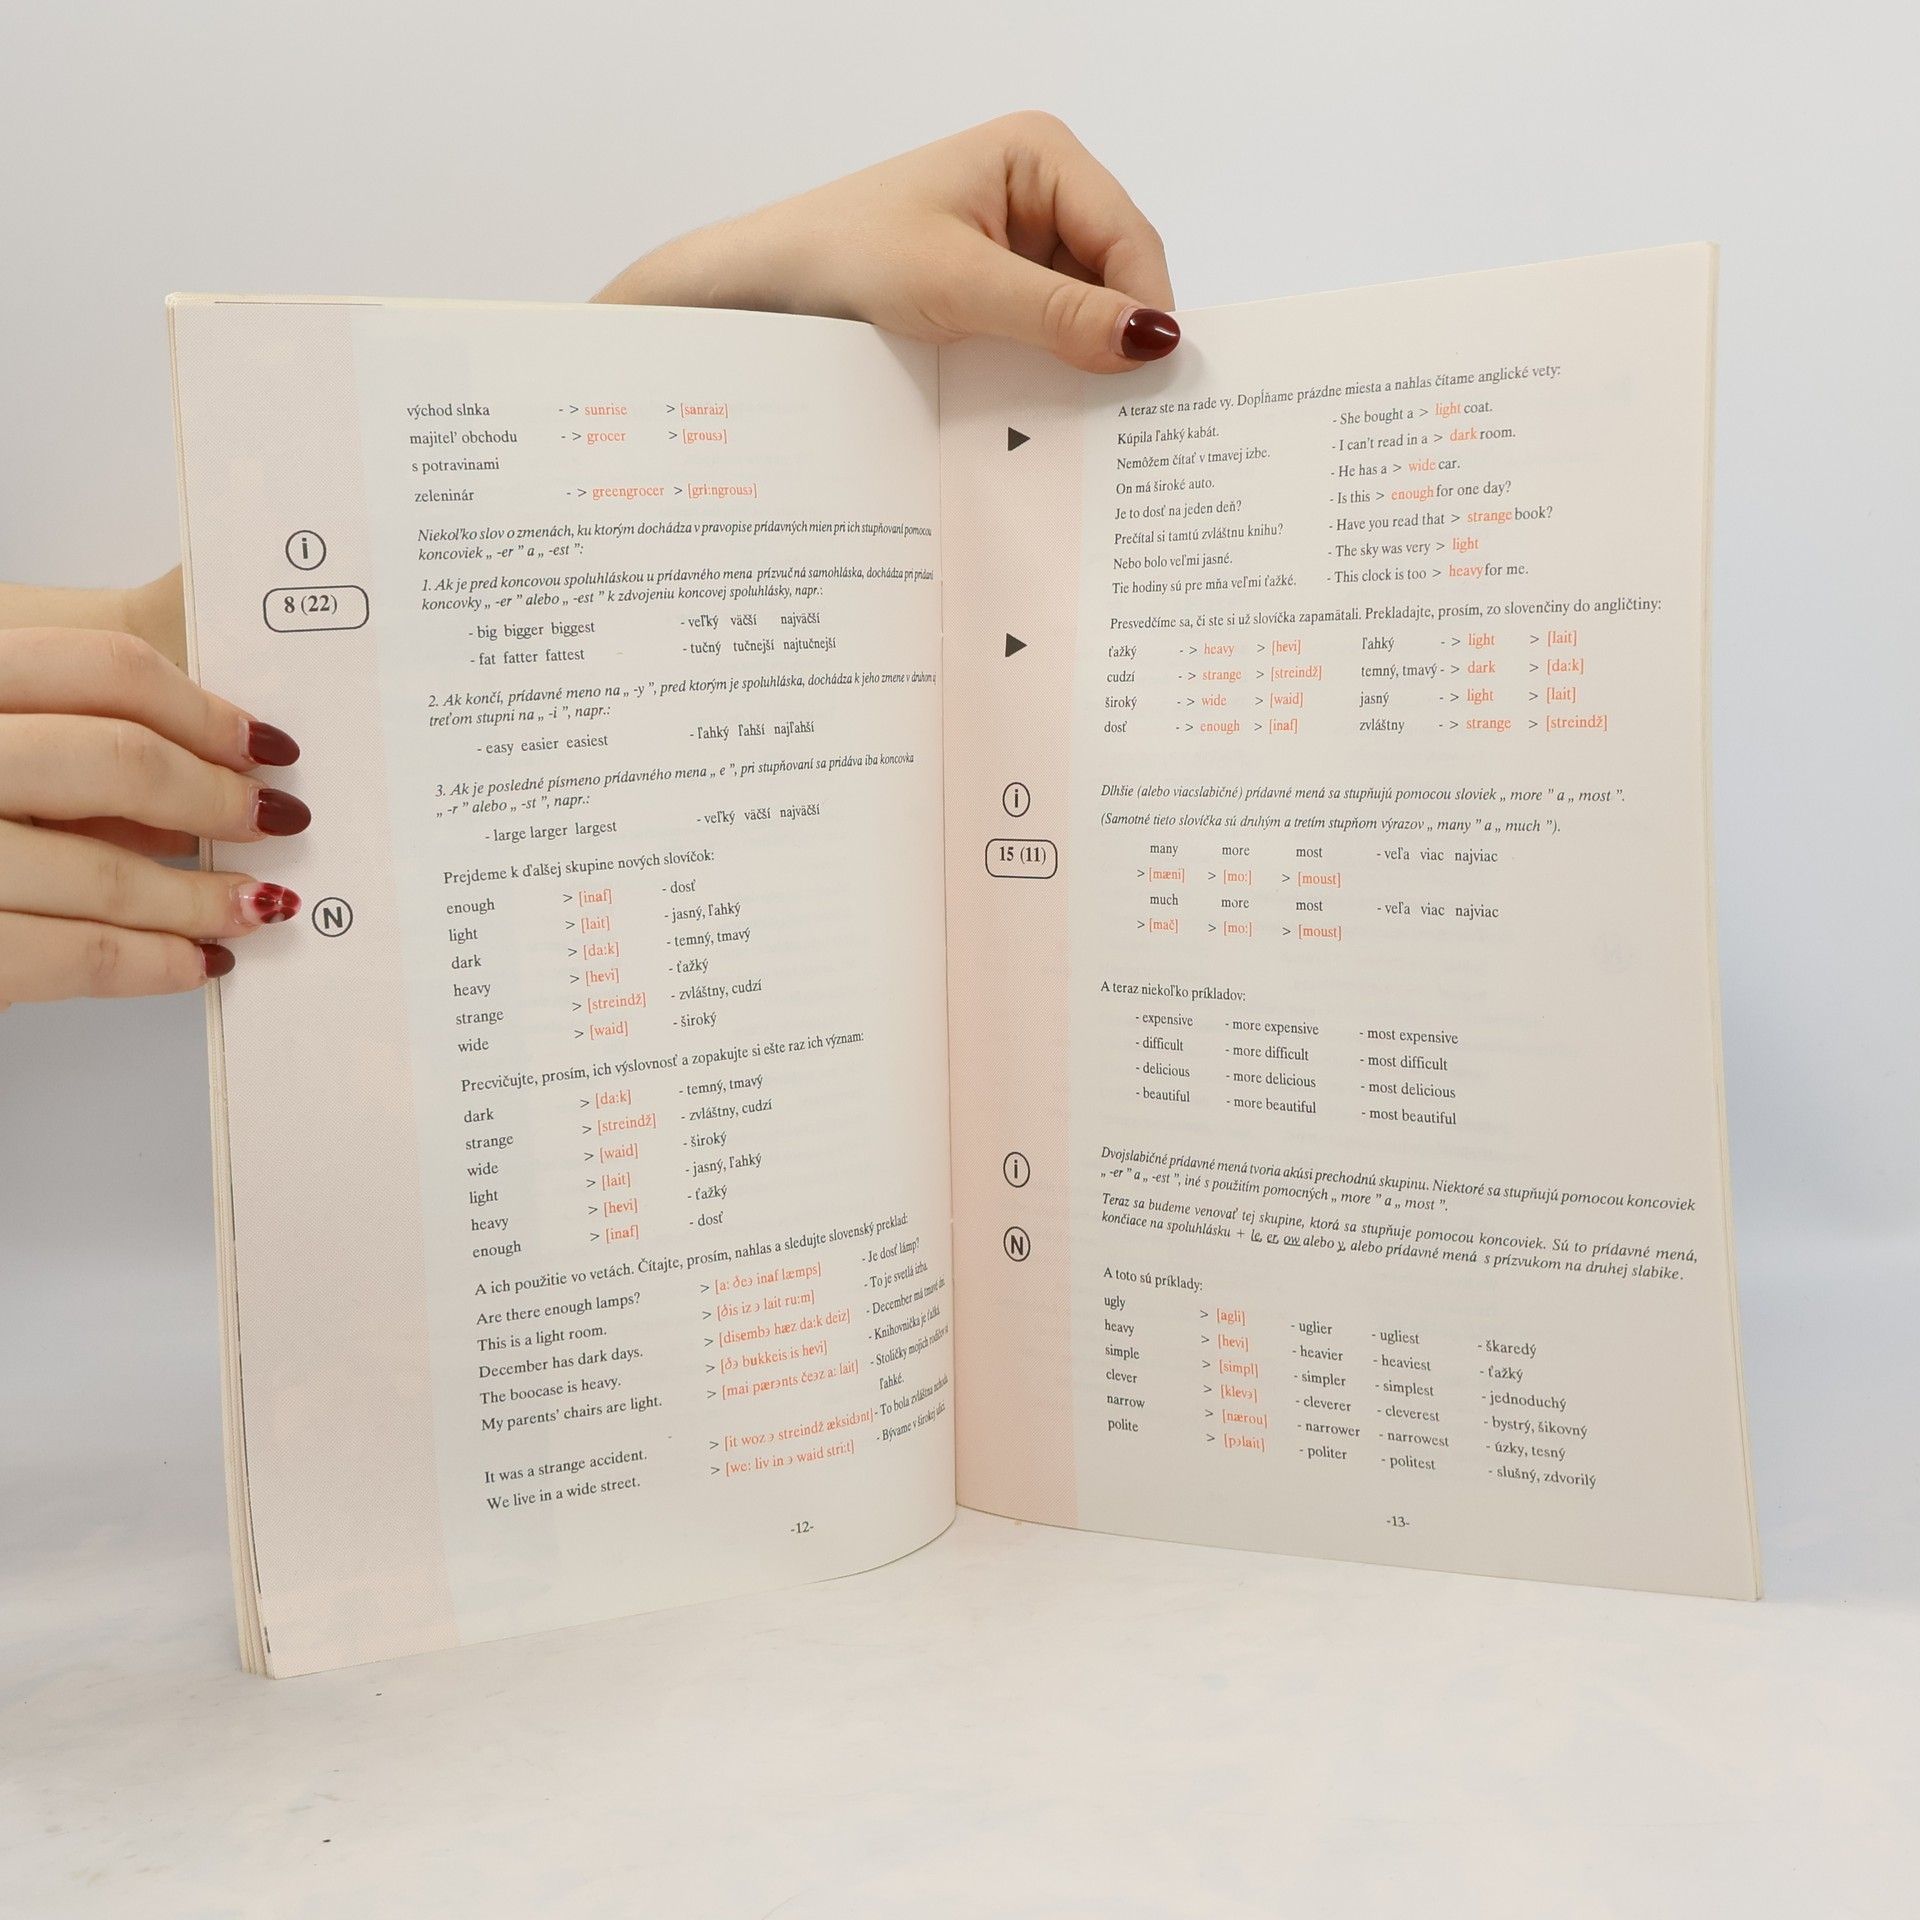 východ slnka - > sunrise > [sanraiz]
majiteľ obchodu - > grocer > [grousɘ]
s potravinami
zeleninár - > greengrocer > [gri:ngrousɘ]
i
Niekoľko slov o zmenách, ku ktorým dochádza v pravopise prídavných mien pri ich stupňovaní pomocou
koncoviek „ -er ” a „ -est ”:
8 (22)
1. Ak je pred koncovou spoluhláskou u prídavného mena prízvučná samohláska, dochádza pri pridaní
koncovky „ -er ” alebo „ -est ” k zdvojeniu koncovej spoluhlásky, napr.:
- big bigger biggest - veľký väčší najväčší
- fat fatter fattest - tučný tučnejší najtučnejší
2. Ak končí, prídavné meno na „ -y ”, pred ktorým je spoluhláska, dochádza k jeho zmene v druhom
treťom stupni na „ -i ”, napr.:
- easy easier easiest - ľahký ľahší najľahší
3. Ak je posledné písmeno prídavného mena „ e ”, pri stupňovaní sa pridáva iba koncovka
„ -r ” alebo „ -st ”, napr.:
- large larger largest - veľký väčší najväčší
Prejdeme k ďalšej skupine nových slovíčok:
N
enough > [inaf] - dosť
light > [lait] - jasný, ľahký
dark > [da:k] - temný, tmavý
heavy > [hevi] - ťažký
strange > [streindž] - zvláštny, cudzí
wide > [waid] - široký
Precvičujte, prosím, ich výslovnosť a zopakujte si ešte raz ich význam:
dark > [da:k] - temný, tmavý
strange > [streindž] - zvláštny, cudzí
wide > [waid] - široký
light > [lait] - jasný, ľahký
heavy > [hevi] - ťažký
enough > [inaf] - dosť
A ich použitie vo vetách. Čítajte, prosím, nahlas a sledujte slovenský preklad:
Are there enough lamps? > [a: ðeɘ inaf læmps] - Je dosť lámp?
This is a light room. > [ðis iz ɘ lait ru:m] - To je svetlá izba.
December has dark days. > [disembɘ hæz da:k deiz] - December má tmavé dni.
The boocase is heavy. > [ðɘ bukkeis is hevi] - Knihovnička je ťažká.
My parents’ chairs are light. > [mai pærɘnts čeɘz a: lait] - Stoličky mojich rodičov sú
ľahké.
It was a strange accident. > [it woz ɘ streindž æksidɘnt] - To bola zvláštna nehoda.
We live in a wide street. > [we: liv in ɘ waid stri:t] - Bývame v širokej ulici.
-12-
A teraz ste na rade vy. Dopĺňame prázdne miesta a nahlas čítame anglické vety:
Kúpila ľahký kabát. - She bought a > light coat.
Nemôžem čítať v tmavej izbe. - I can’t read in a > dark room.
On má široké auto. - He has a > wide car.
Je to dosť na jeden deň? - Is this > enough for one day?
Prečítal si tamtú zvláštnu knihu? - Have you read that > strange book?
Nebo bolo veľmi jasné. - The sky was very > light
Tie hodiny sú pre mňa veľmi ťažké. - This clock is too > heavy for me.
Presvedčíme sa, či ste si už slovíčka zapamätali. Prekladajte, prosím, zo slovenčiny do angličtiny:
ťažký - > heavy > [hevi] ľahký - > light > [lait]
cudzí - > strange > [streindž] temný, tmavý - > dark > [da:k]
široký - > wide > [waid] jasný - > light > [lait]
dosť - > enough > [inaf] zvláštny - > strange > [streindž]
i
Dlhšie (alebo viacslabičné) prídavné mená sa stupňujú pomocou sloviek „ more ” a „ most ”.
(Samotné tieto slovíčka sú druhým a tretím stupňom výrazov „ many ” a „ much ”).
15 (11)
many more most - veľa viac najviac
> [mæni] > [mo:] > [moust]
much more most - veľa viac najviac
> [mač] > [mo:] > [moust]
A teraz niekoľko príkladov:
- expensive - more expensive - most expensive
- difficult - more difficult - most difficult
- delicious - more delicious - most delicious
- beautiful - more beautiful - most beautiful
i
Dvojslabičné prídavné mená tvoria akúsi prechodnú skupinu. Niektoré sa stupňujú pomocou koncoviek
„ -er ” a „ -est ”, iné s použitím pomocných „ more ” a „ most ”.
N
Teraz sa budeme venovať tej skupine, ktorá sa stupňuje pomocou koncoviek. Sú to prídavné mená,
končiace na spoluhlásku + le, er, ow alebo y, alebo prídavné mená s prízvukom na druhej slabike.
A toto sú príklady:
ugly > [agli] - uglier - ugliest - škaredý
heavy > [hevi] - heavier - heaviest - ťažký
simple > [simpl] - simpler - simplest - jednoduchý
clever > [klevɘ] - cleverer - cleverest - bystrý, šikovný
narrow > [nærou] - narrower - narrowest - úzky, tesný
polite > [pɘlait] - politer - politest - slušný, zdvorilý
-13-